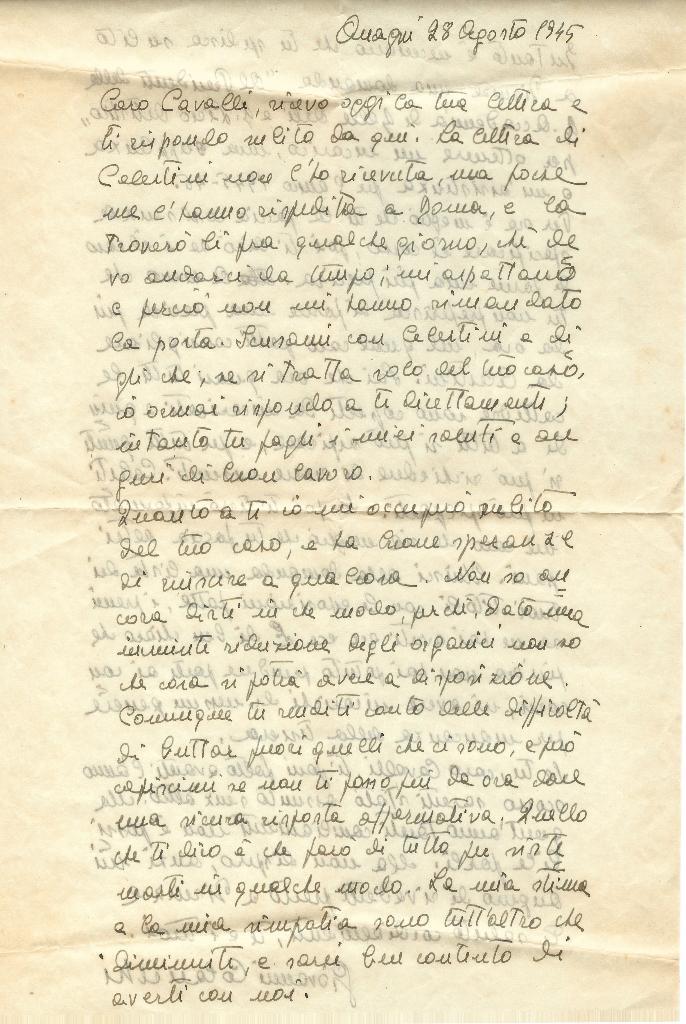 Anagni 28 Agosto 1945
Caro Cavalli, ricevo oggi la tua lettera e
ti rispondo subito da qui. La lettera di
Celestini non l'ho ricevuta, ma forse
me l'hanno rispedita a Roma, e la
troverò lì fra qualche giorno, chè de
vo andarci da tempo; mi aspettano
e perciò non mi hanno rimandato
la posta. Scusami con Celestini e di
gli che, se si tratta solo del tuo caso,
io ormai rispondo a te direttamente;
intanto tu fagli i miei saluti e au
guri di buon lavoro.
Quanto a te io mi occuperò subito
del tuo caso, e ho buone speranze
di riuscire a qualcosa. Non so an
cora dirti in che modo, perchè, data una
imminente riduzione degli organici non so
che cosa si potrà avere a disposizione.
Comunque tu renditi conto delle difficoltà
di buttar fuori quelli che ci sono, e però
capiscimi se non ti posso fin da ora dare
una sicura risposta affermativa. Quello
che ti dico è che farò di tutto per siste
marti in qualche modo. La mia stima
e la mia simpatia sono tutt'altro che
diminuite, e sarei ben contento di
averti con noi.